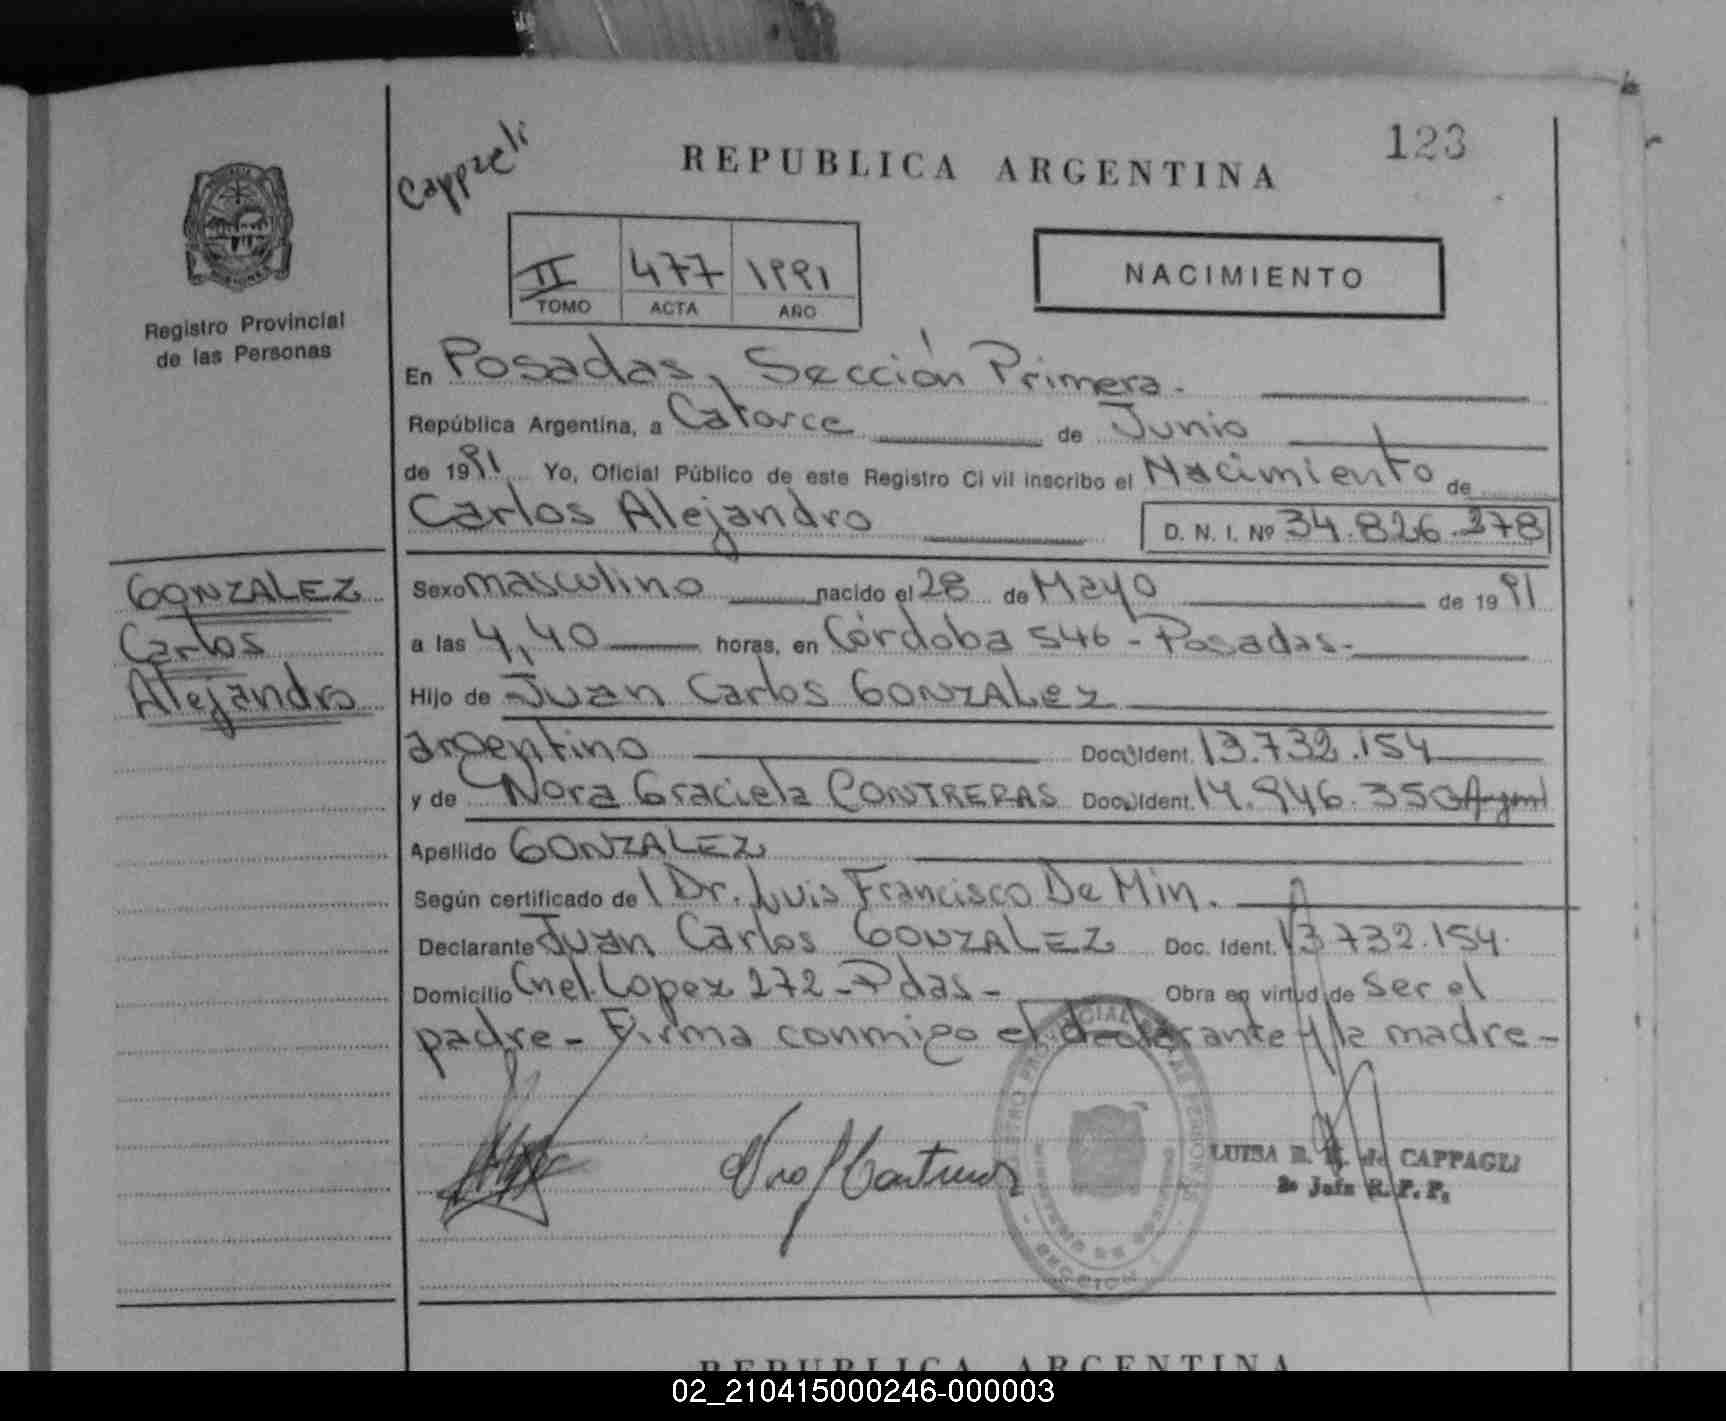 Cappaeli
REPUBLICA ARGENTINA
123
II 477 1991
TOMO ACTA AÑO
NACIMIENTO
Registro Provincial
de las Personas
En Posadas, Sección Primera.
República Argentina, a Catorce de Junio
de 1991 Yo, Oficial Público de este Registro Civil inscribo el Nacimiento de
Carlos Alejandro D. N. I. Nº 34.826.378
GONZALEZ
Carlos
Alejandro
Sexo masculino nacido el 28 de Mayo de 1991
a las 4,40 horas, en Córdoba 546 - Posadas-
Hijo de Juan Carlos GONZALEZ
argentino Doc. Ident. 13.732.154
y de Nora Graciela CONTRERAS Doc. Ident. 14.946.353 Argent
Apellido GONZALEZ
Según certificado de Dr. Luis Francisco De Min.
Declarante Juan Carlos GONZALEZ Doc. Ident. 13.732.154.
Domicilio Cnel. Lopez 272 - Pdas - Obra en virtud de ser el
padre - Firma conmigo el declarante y la madre -
LUISA de CAPPAGLI
2º Jefe R. P. P.
REPUBLICA ARGENTINA
02_210415000246-000003